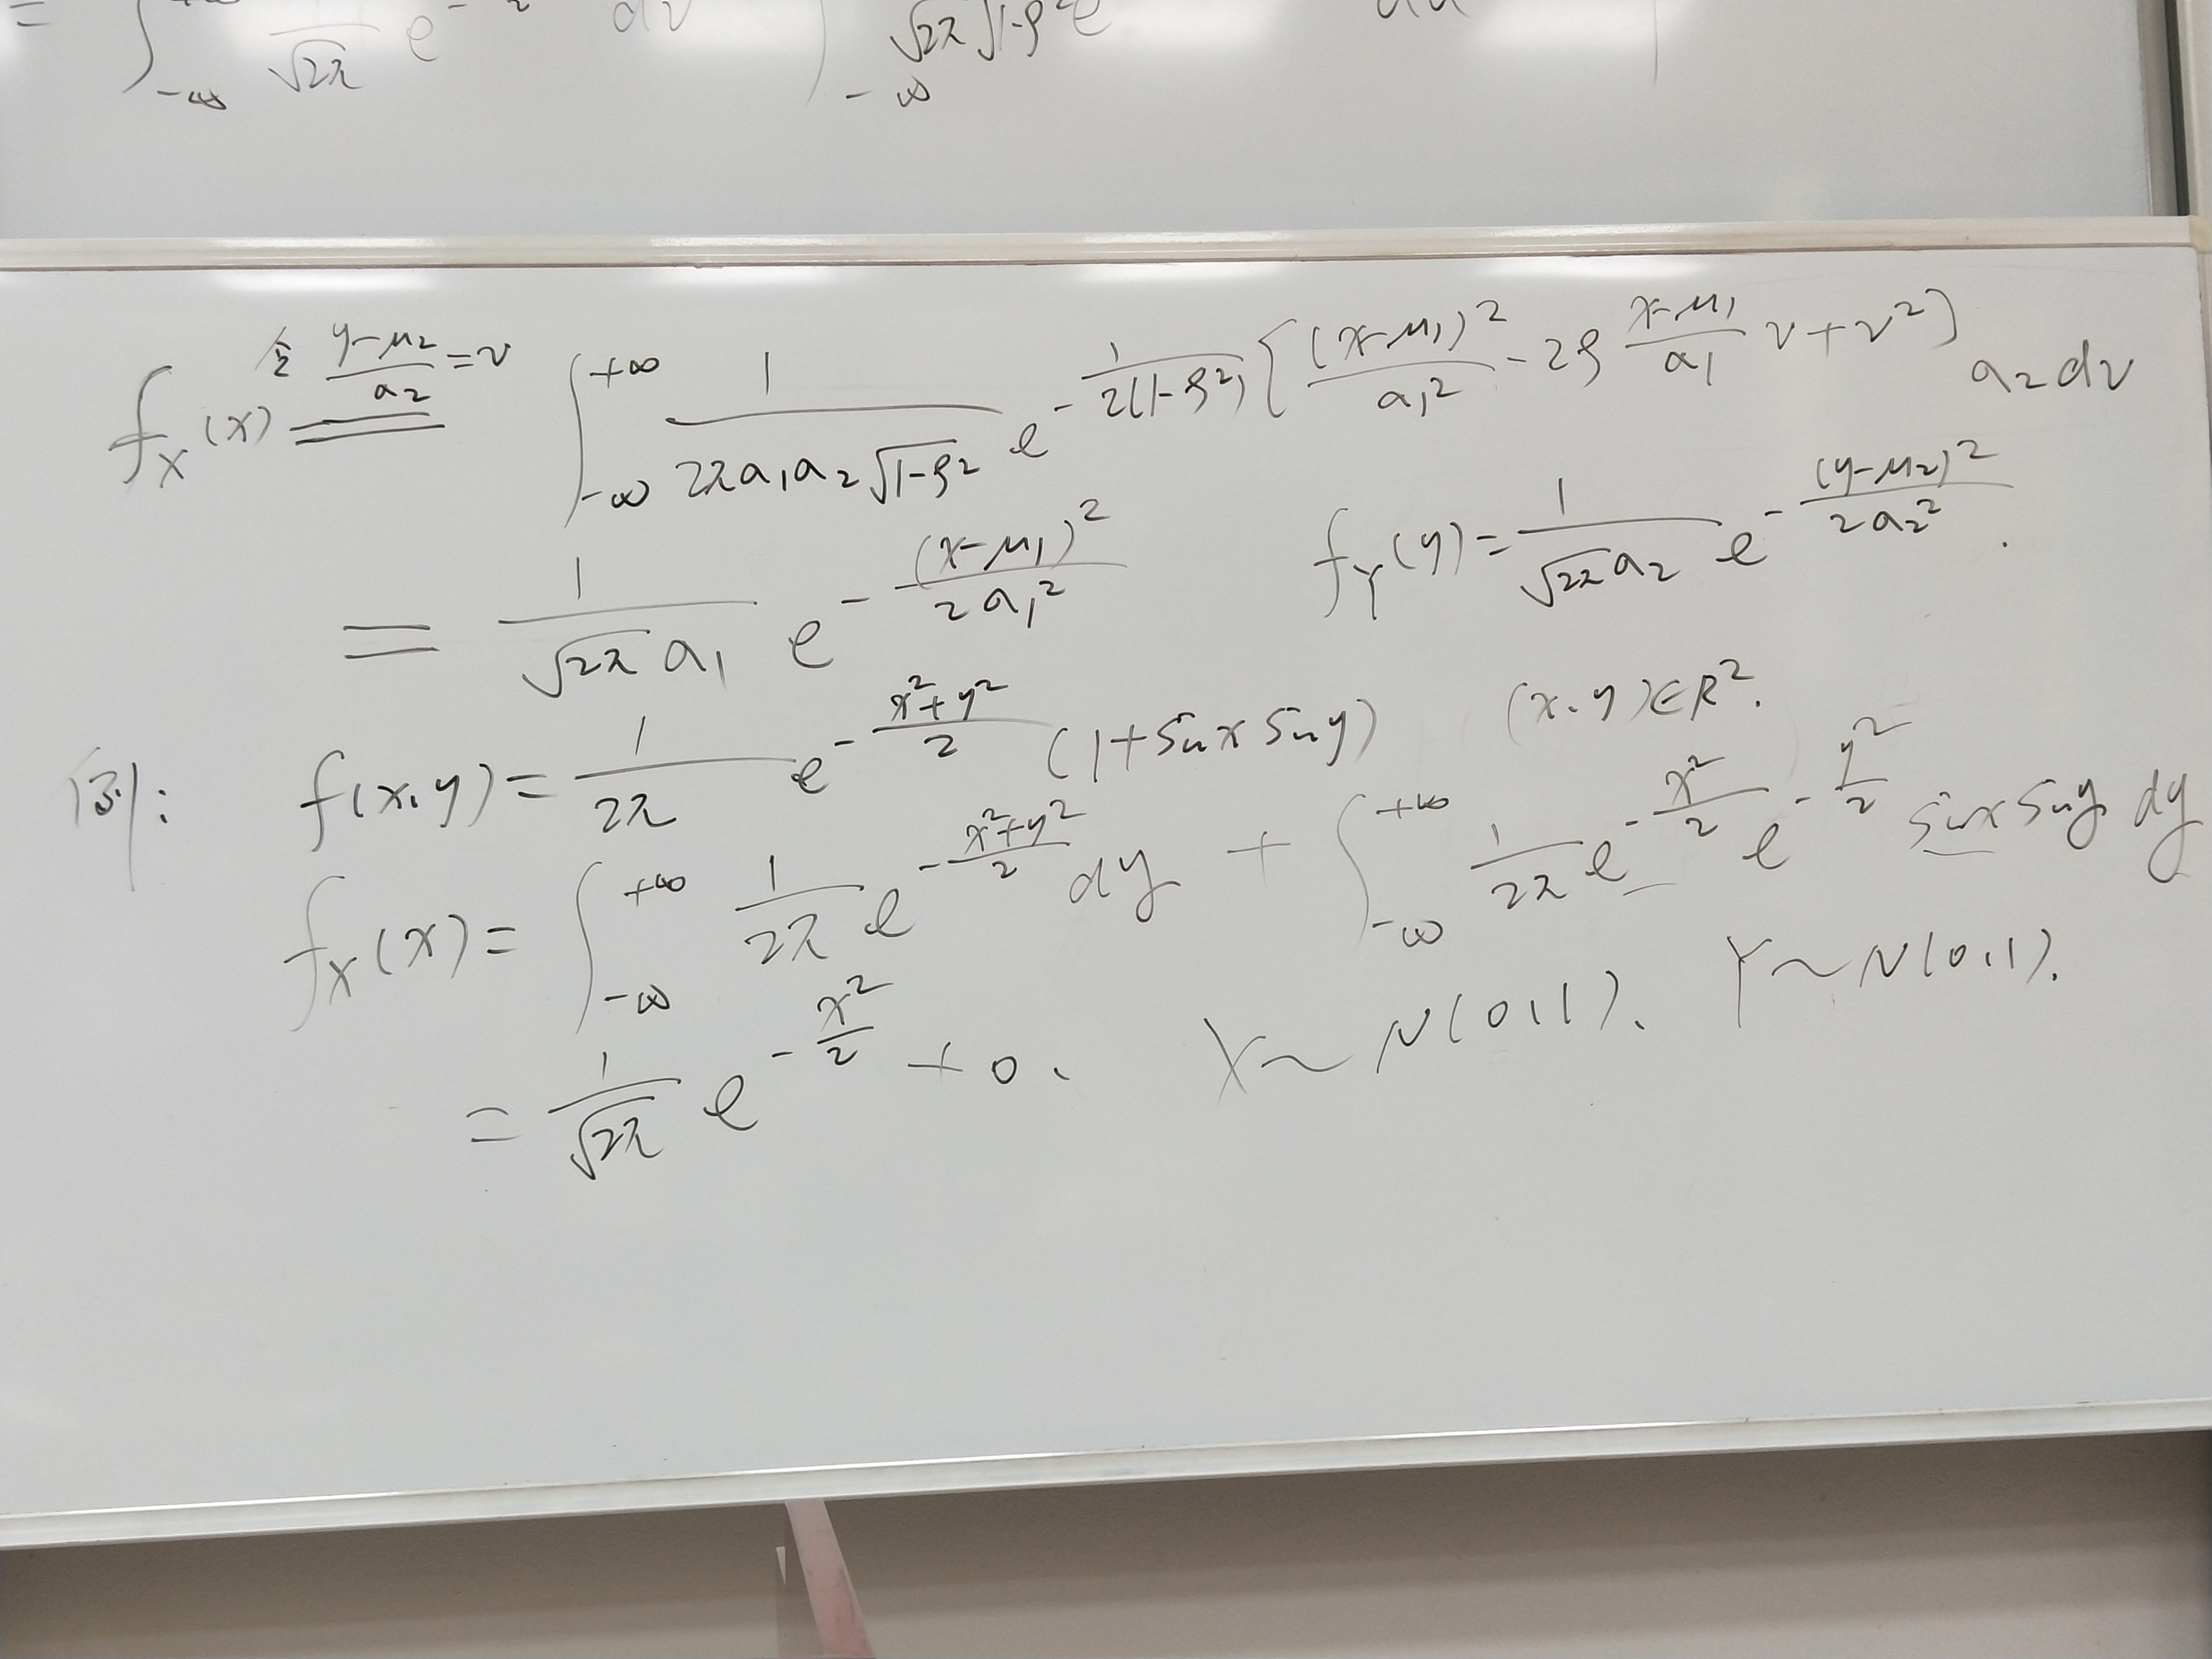 = ∫_{-∞}^{+∞} 1/√2π e^{- 2} dv ∫_{-∞} √2π √1-ρ² e du
f_X(x) ==令 (y-μ₂)/a₂ = v== ∫_{-∞}^{+∞} 1/(2πa₁a₂√(1-ρ²)) e^{- 1/(2(1-ρ²)) [(x-μ₁)²/a₁² - 2ρ (x-μ₁)/a₁ v + v²]} a₂ dv
= 1/(√2π a₁) e^{- (x-μ₁)²/(2a₁²)} f_Y(y) = 1/(√2π a₂) e^{- (y-μ₂)²/(2a₂²)}.
例: f(x,y) = 1/2π e^{- (x²+y²)/2} (1+sinx siny) (x,y)∈R².
f_X(x) = ∫_{-∞}^{+∞} 1/2π e^{- (x²+y²)/2} dy + ∫_{-∞}^{+∞} 1/2π e^{- x²/2} e^{- y²/2} sinx siny dy
= 1/√2π e^{- x²/2} + 0. X~N(0,1). Y~N(0,1).